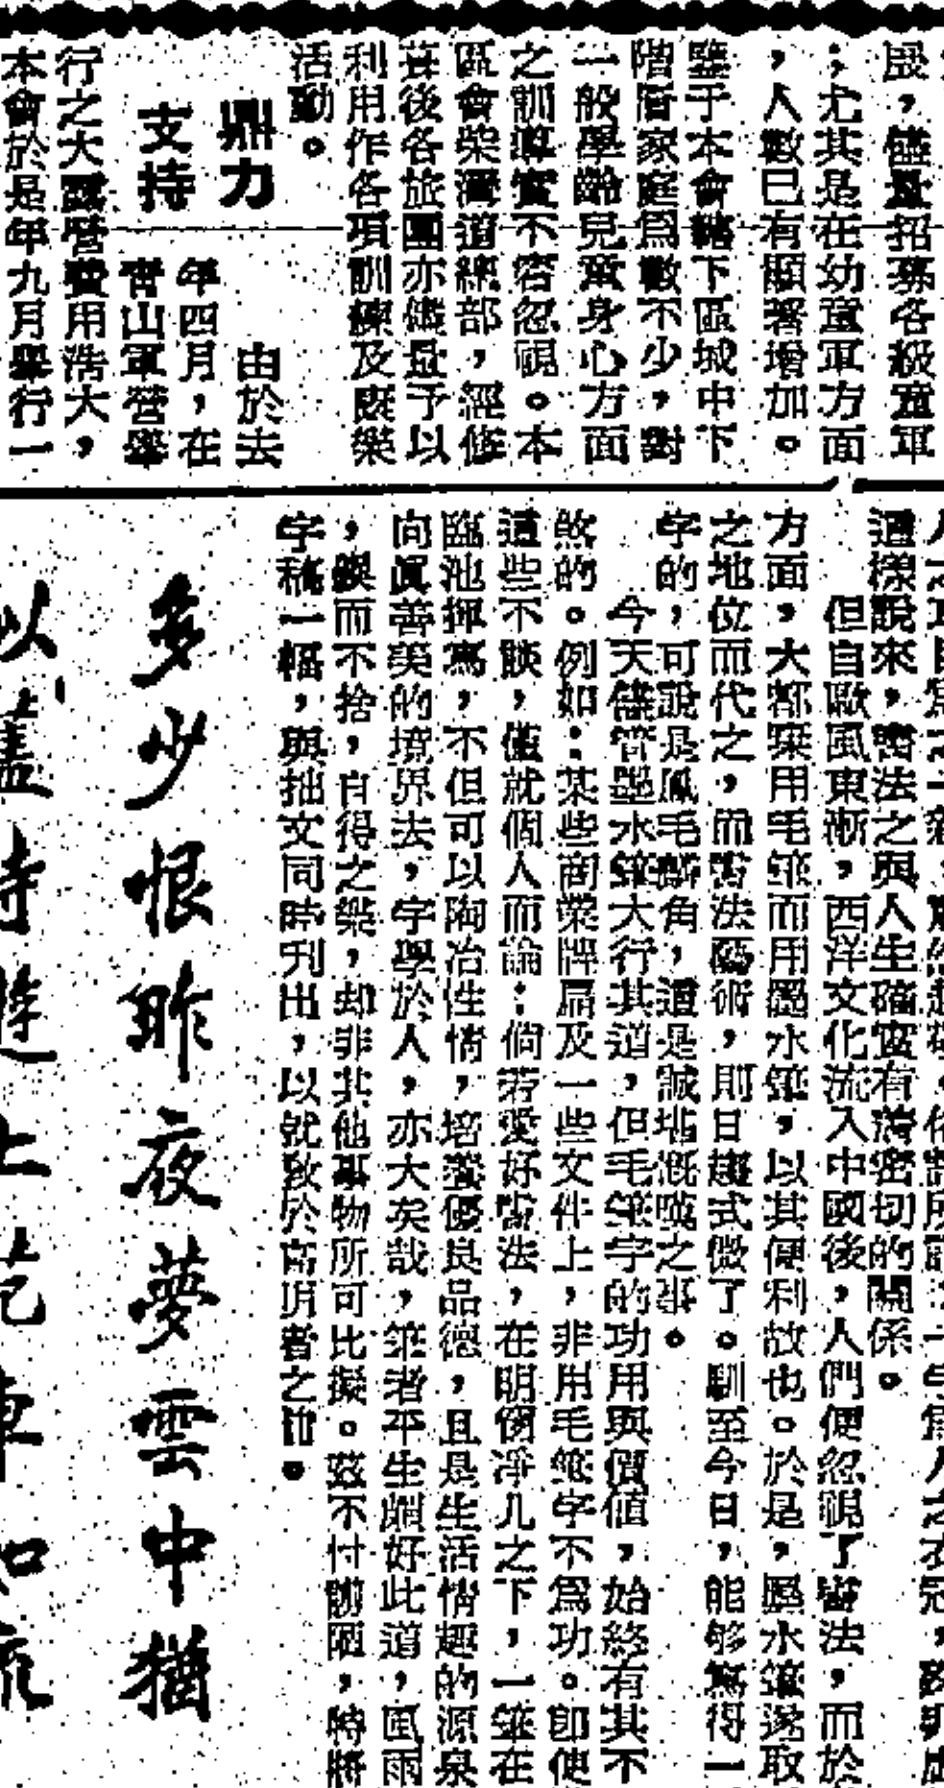 展，儘量招募各級童軍
；尤其是在幼童軍方面
，人數已有顯著增加。
鑒于本會轄下區域中下
階層家庭為數不少，對
一般學齡兒童身心方面
之訓導實不容忽視。本
區會柴灣道總部，經修
葺後各旅團亦儘量予以
利用作各項訓練及康樂
活動。
鼎力
支持
由於去
年四月，在
青山軍營舉
行之大露營費用浩大，
本會於是年九月舉行一
這樣說來，書法之與人生確實有着密切的關係。
但自歐風東漸，西洋文化流入中國後，人們便忽視了書法，而於
方面，大都棄用毛筆而用墨水筆，以其便利故也。於是，墨水筆遂取
之地位而代之，而書法藝術，則日趨式微了。馴至今日，能够寫得一
字的，可說是鳳毛麟角，這是誠堪慨嘆之事。
今天儘管墨水筆大行其道，但毛筆字的功用與價值，始終有其不
煞的。例如：某些商業牌扁及一些文件上，非用毛筆字不為功。卽使
這些不談，僅就個人而論：倘若愛好書法，在明窗淨几之下，一筆在
臨池揮寫，不但可以陶冶性情，培養優良品德，且是生活情趣的源泉
向眞善美的境界去，字學於人，亦大矣哉，筆者平生頗好此道，風雨
，鍥而不捨，自得之樂，却非其他事物所可比擬。茲不忖謭陋，特將
字稿一幅，與拙文同時刋出，以就敎於高明者之前。
多少恨昨夜夢雲中猶
以舊時遊上苑車如流